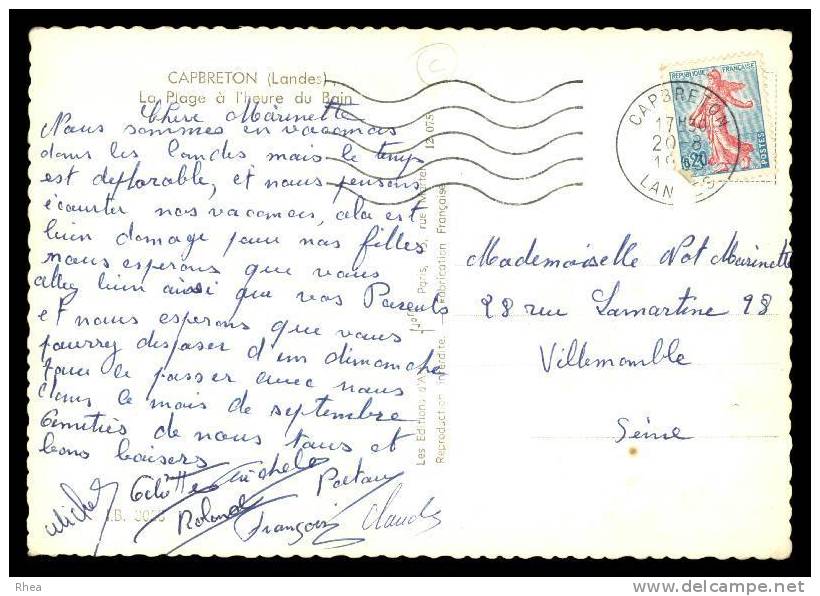 CAPBRETON (Landes)
La Plage à l'heure du Bain
Chère Marinette
Nous sommes en vacances
dans les landes mais le temps
est deplorable, et nous pensons
écourter nos vacances, cela est
bien domage pour nos filles
nous esperons que vous
allez bien ainsi que vos Parents
et nous esperons que vous
pourrez disposer d'un dimanche
pour le passer avec nous
dans le mois de septembre
Amitiés de nous tous et
bons baisers
Michel
Michele
Roland
François
Claude
I.B.
Les Editions d'Art
Paris, 5, rue
Reproduction interdite. Fabrication Française
CAPBRETON
17H
20 8
19
LANDES
REPUBLIQUE FRANÇAISE
0,20
POSTES
Mademoiselle Pot Marinette
28 rue Lamartine 28
Villemomble
Seine
Rhea
www.delcampe.net